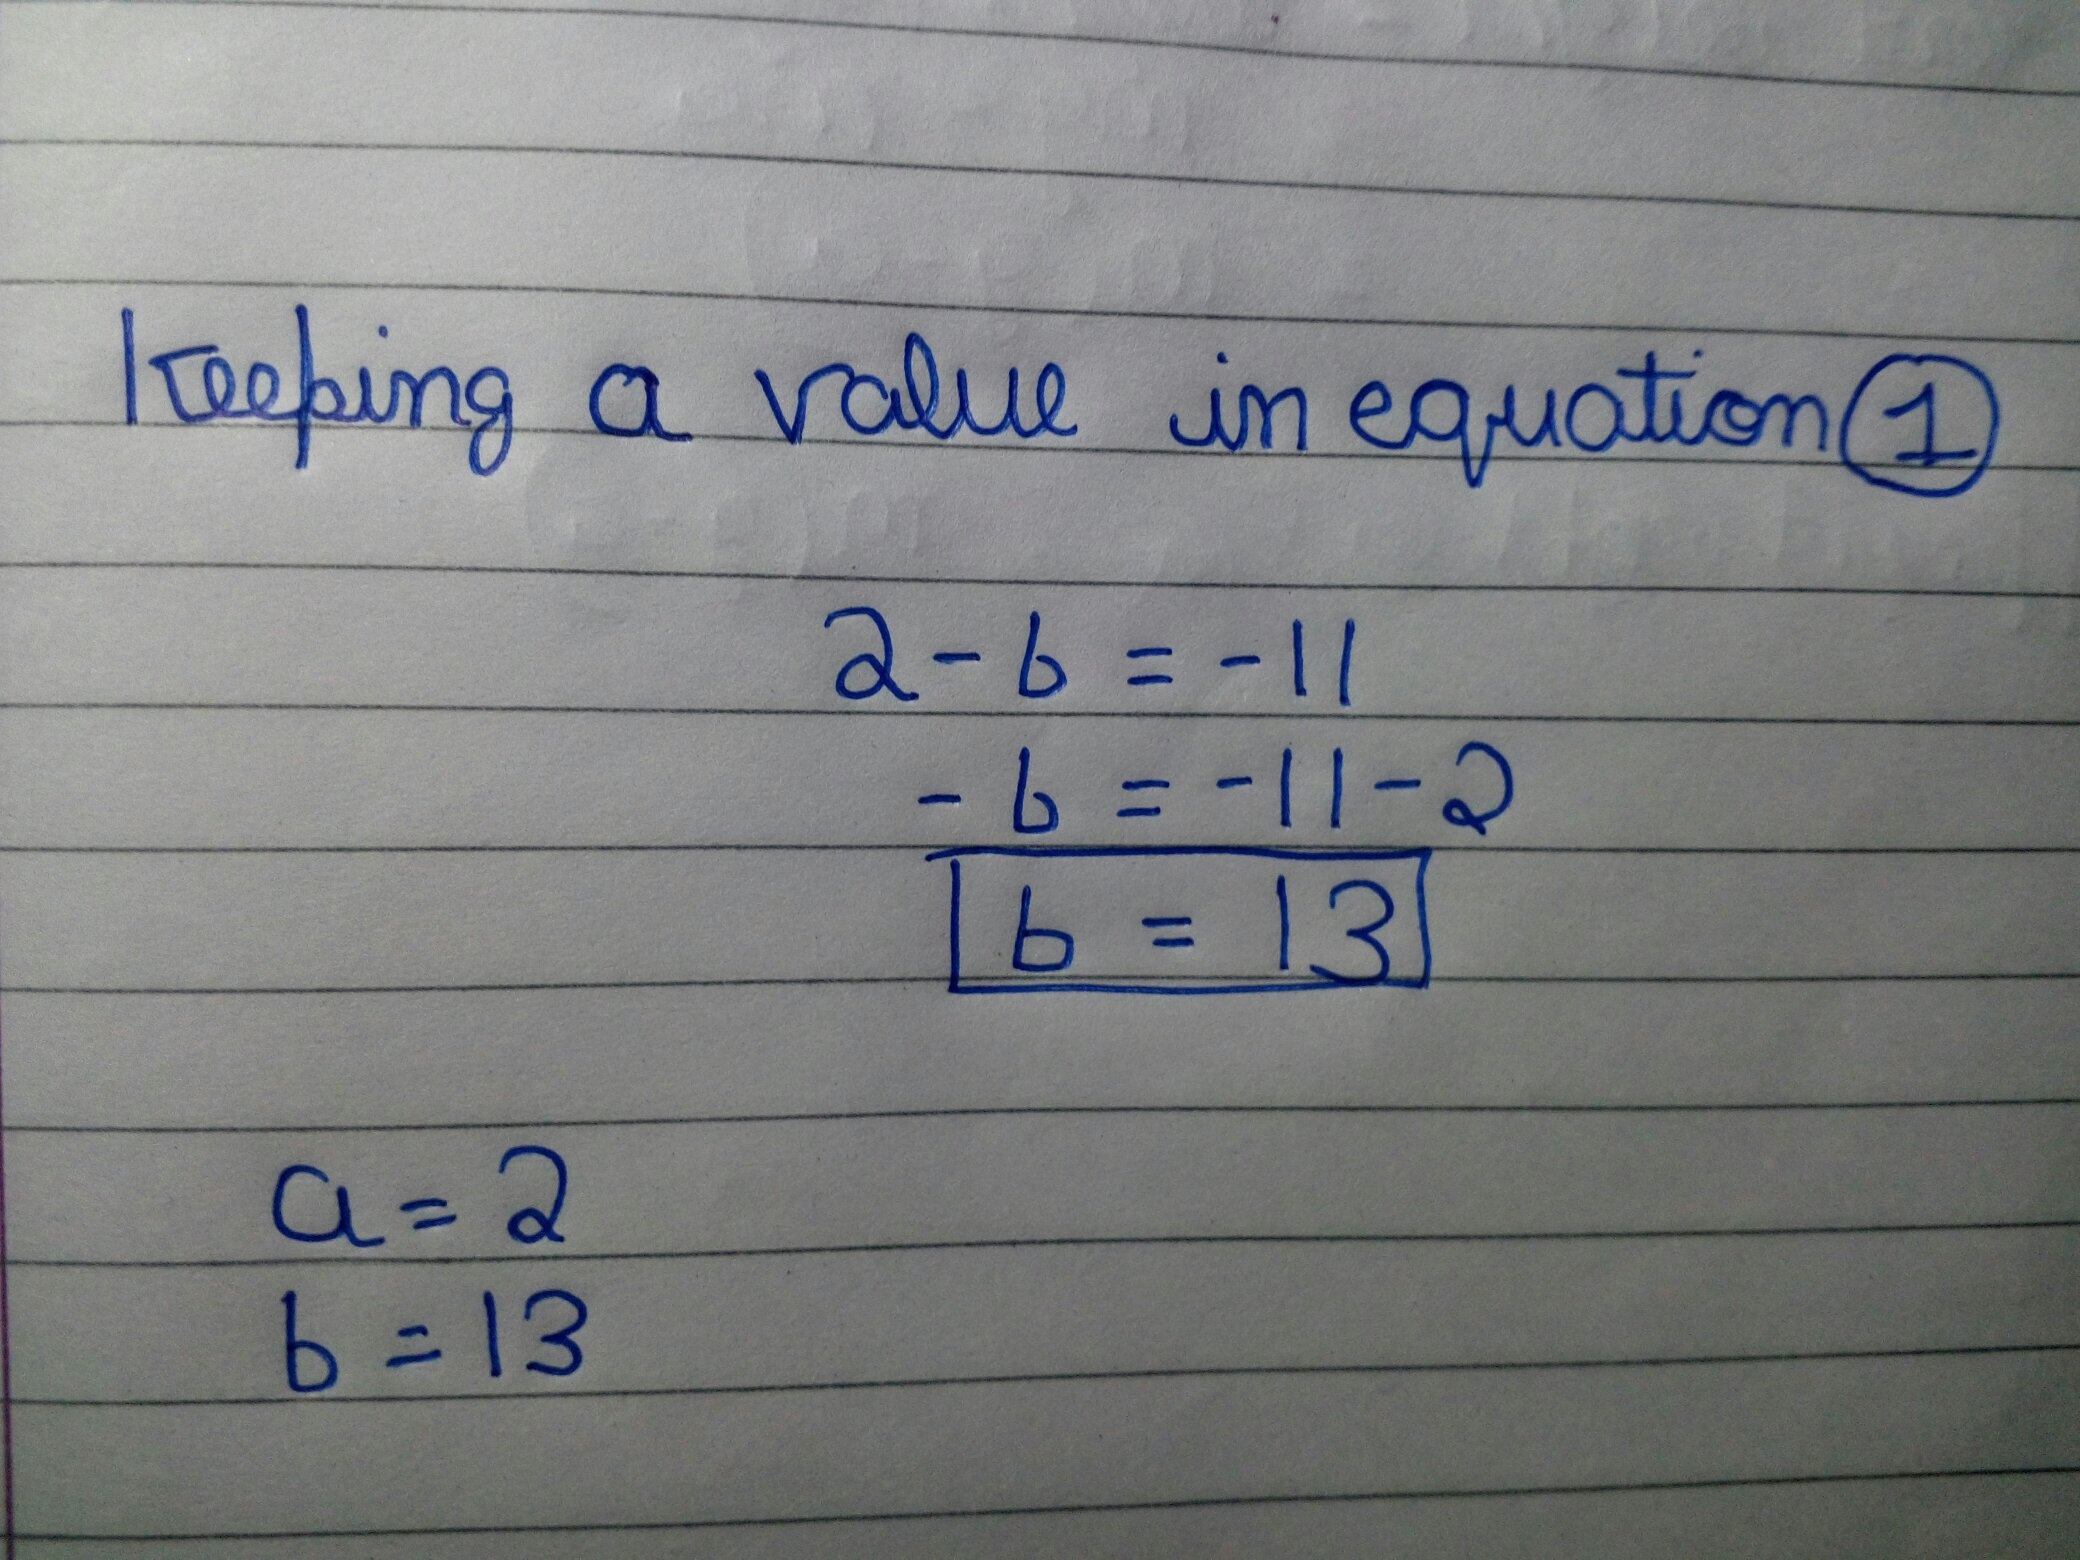 Keeping a value in equation 1
2 - b = -11
- b = -11 - 2
b = 13
a = 2
b = 13